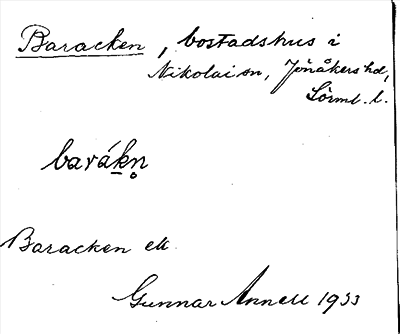 Baracken, bostadshus i
Nikolai sn, Jönåkers hd,
Sörml. l.
barákn̥
Baracken
Gunnar Annell 1933